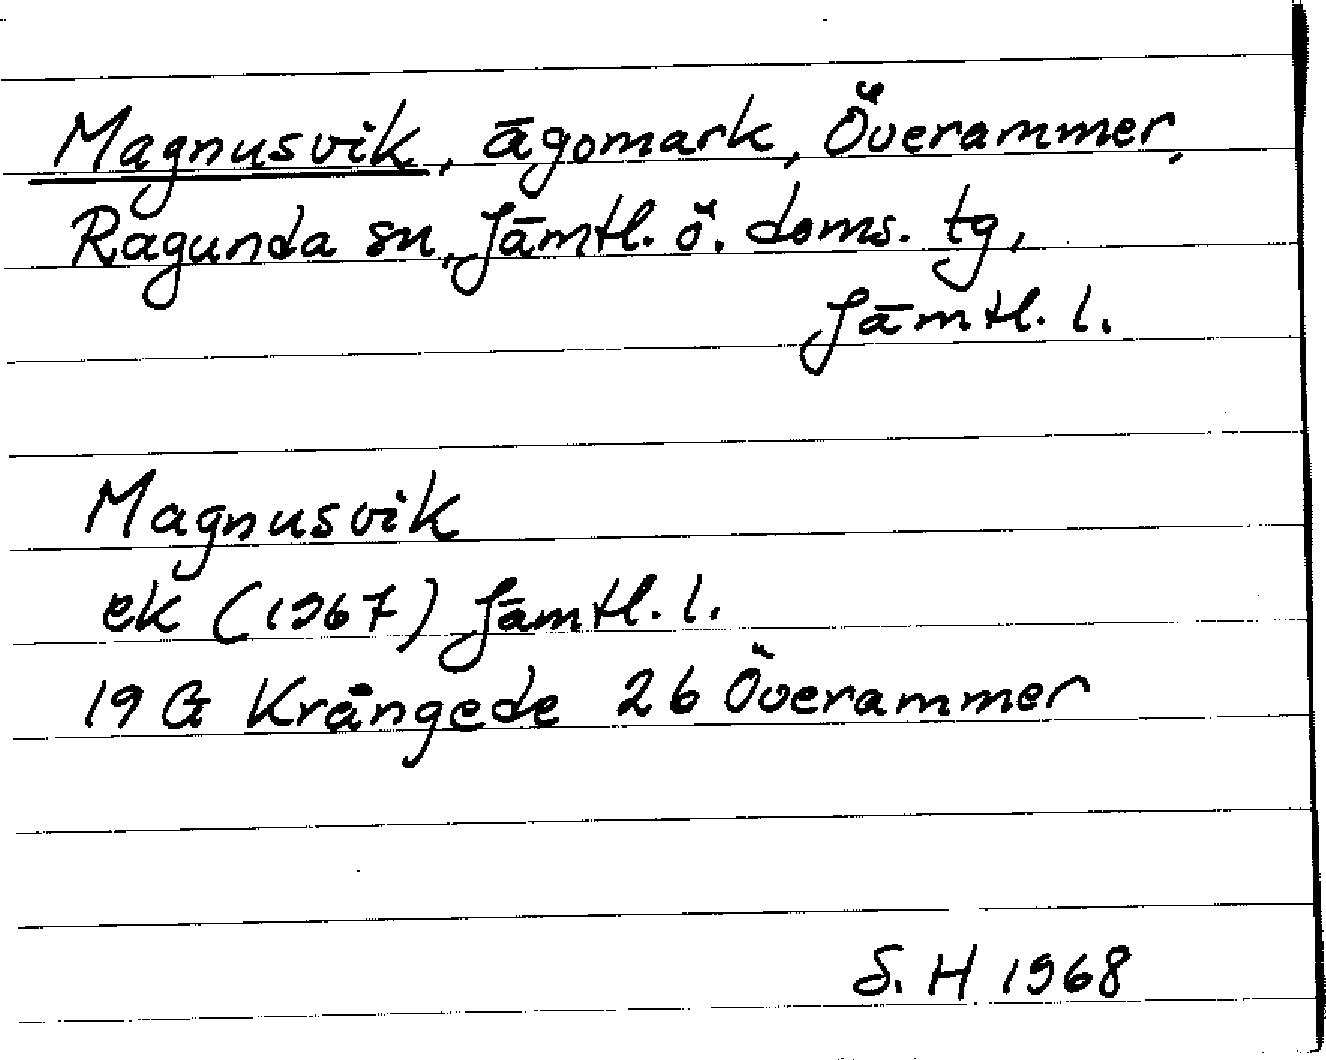 Magnusvik, ägomark, Överammer,
Ragunda sn, Jämtl. ö. doms. tg,
Jämtl. l.
Magnusvik
ek (1967) Jämtl. l.
19 G Krångede 26 Överammer
S. H 1968